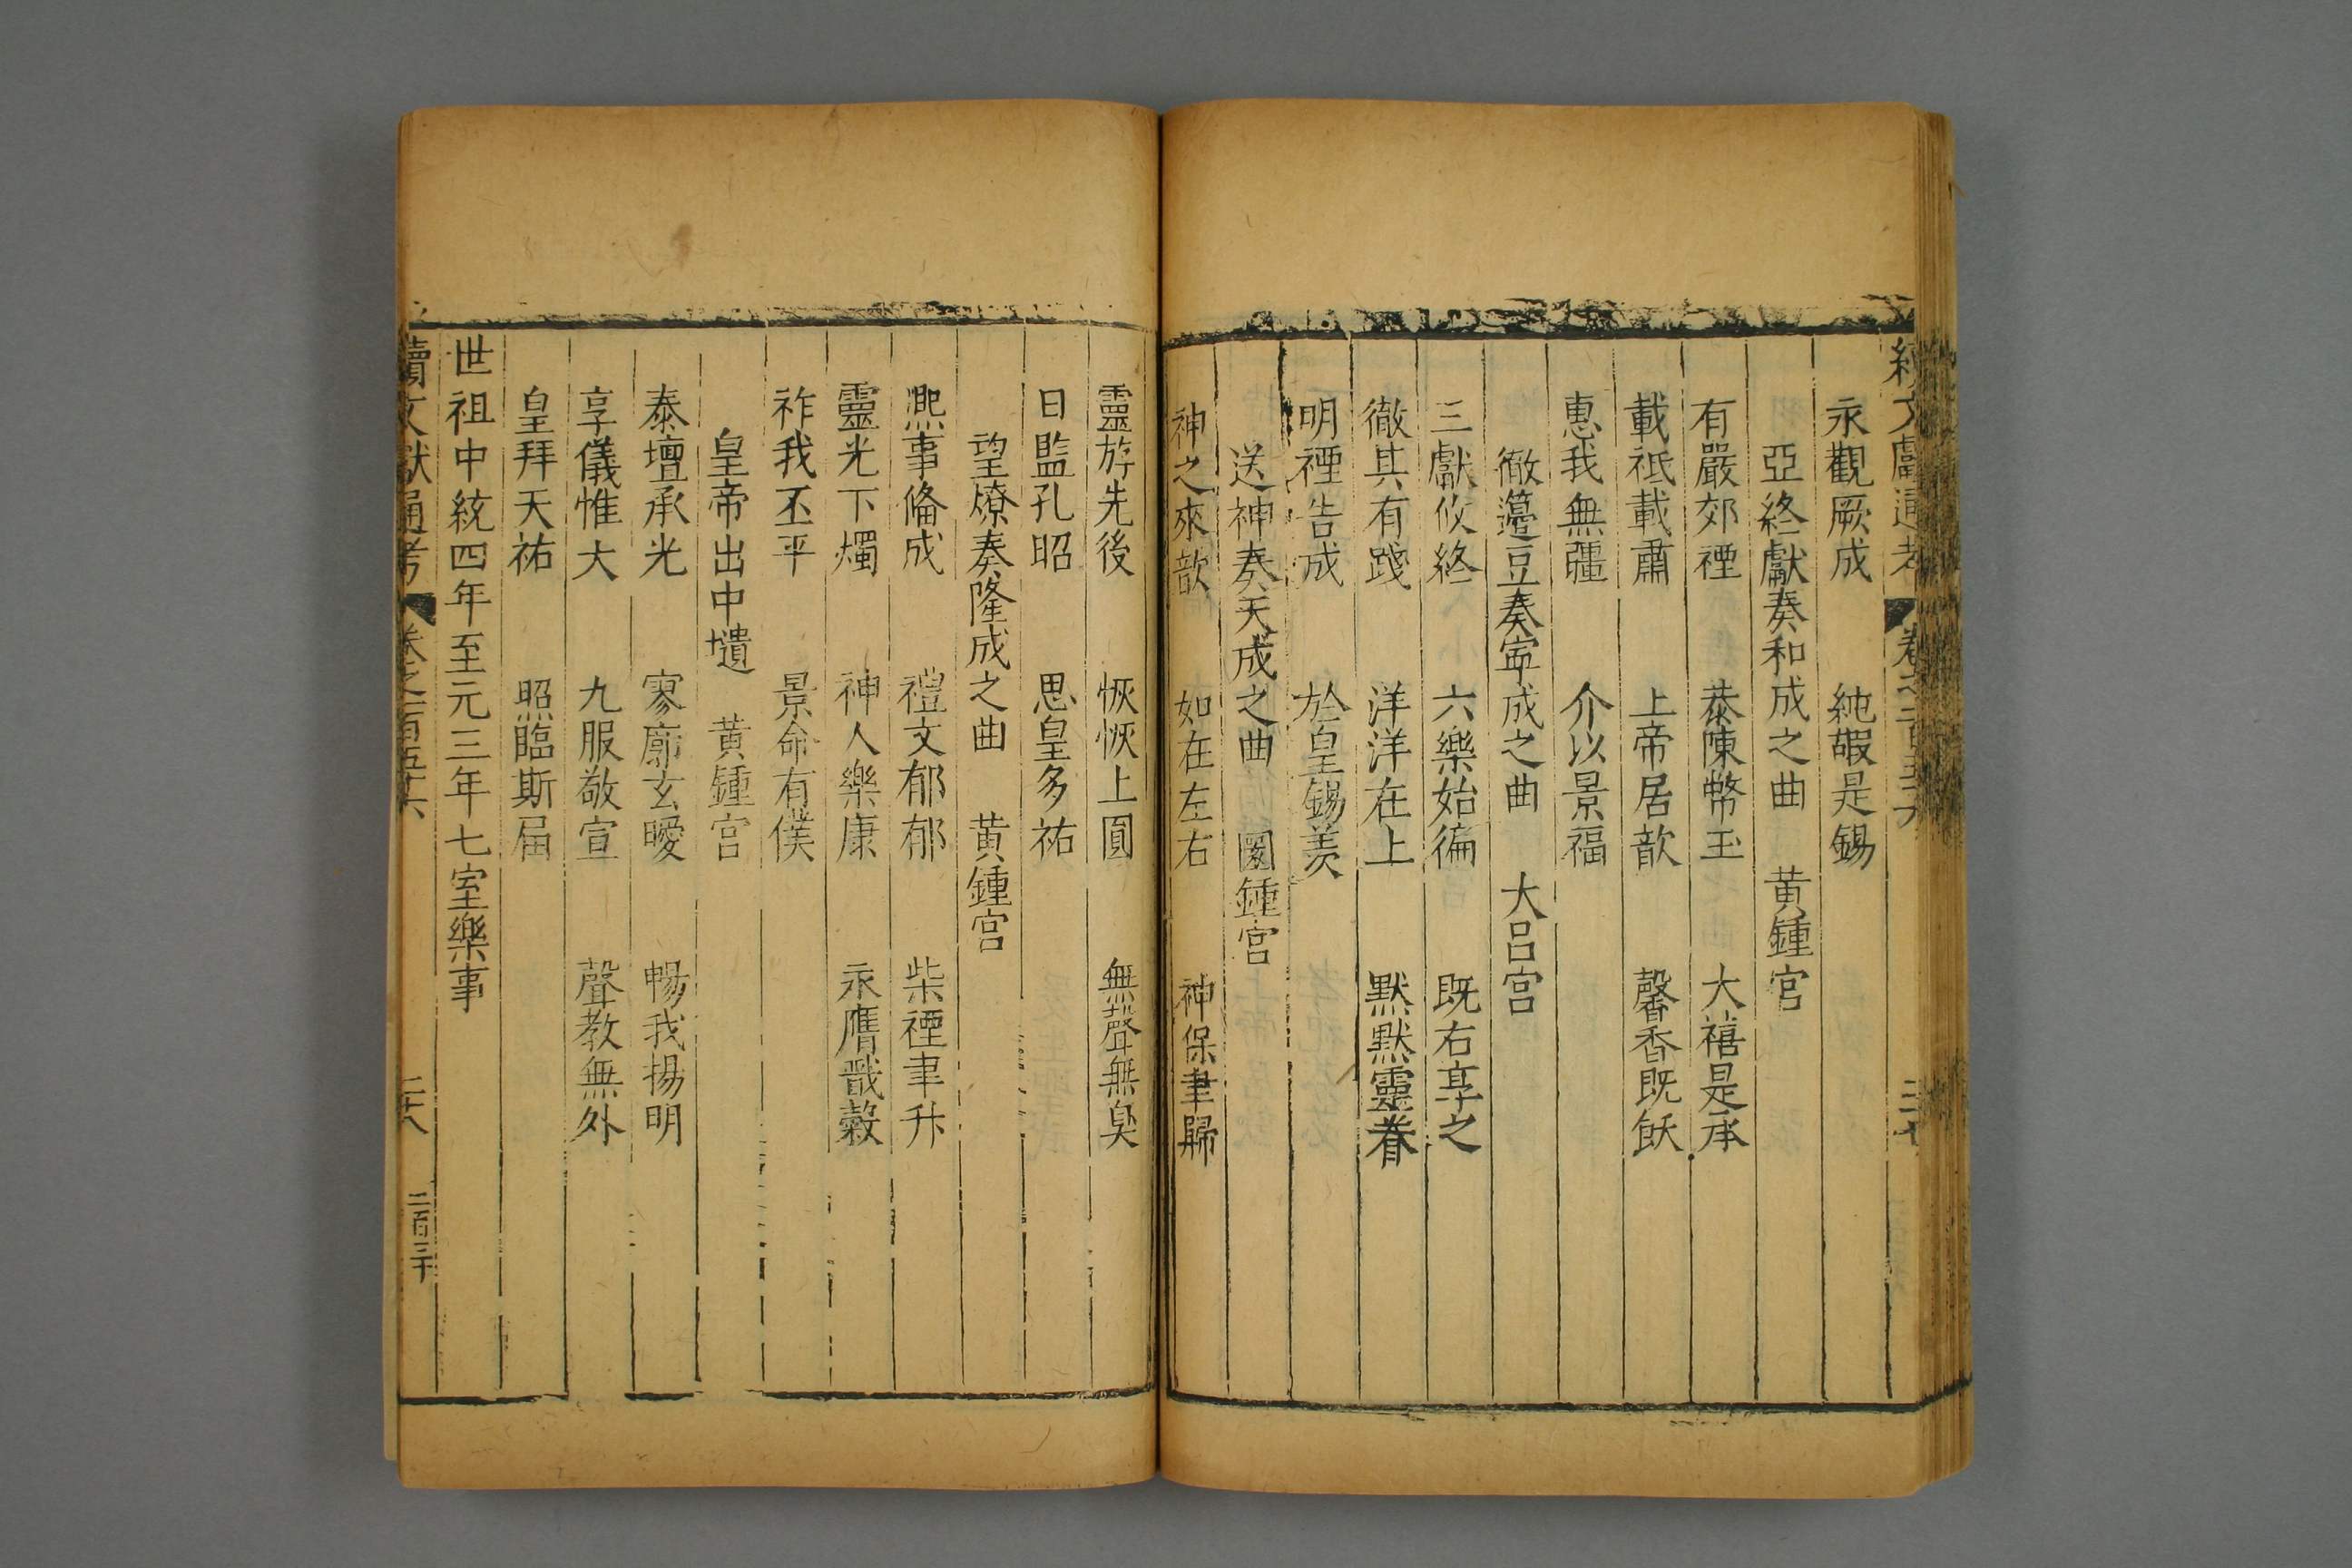 續文獻通考 卷之一百五十六 二十七
永觀厥成 純嘏是錫
亞終獻奏和成之曲 黃鍾宮
有嚴郊禋 恭陳幣玉 大禧是承
載祗載肅 上帝居歆 馨香既飫
惠我無疆 介以景福
徹籩豆奏寜成之曲 大呂宮
三獻攸終 六樂始徧 既右享之
徹其有踐 洋洋在上 默默靈眷
明禋告成 於皇錫羨
送神奏天成之曲 圜鍾宮
神之來歆 如在左右 神保聿歸
靈斿先後 恢恢上圓 無聲無臭
日監孔昭 思皇多祐
望燎奏隆成之曲 黃鍾宮
熙事俻成 禮文郁郁 柴禋聿升
靈光下燭 神人樂康 永膺戩穀
祚我丕平 景命有僕
皇帝出中壝 黃鍾宮
泰壇承光 寥廓玄曖 暢我揚明
享儀惟大 九服敬宣 聲教無外
皇拜天祐 照臨斯屆
世祖中統四年至元三年七室樂事
續文獻通考 卷之一百五十六 二十八 二百三十